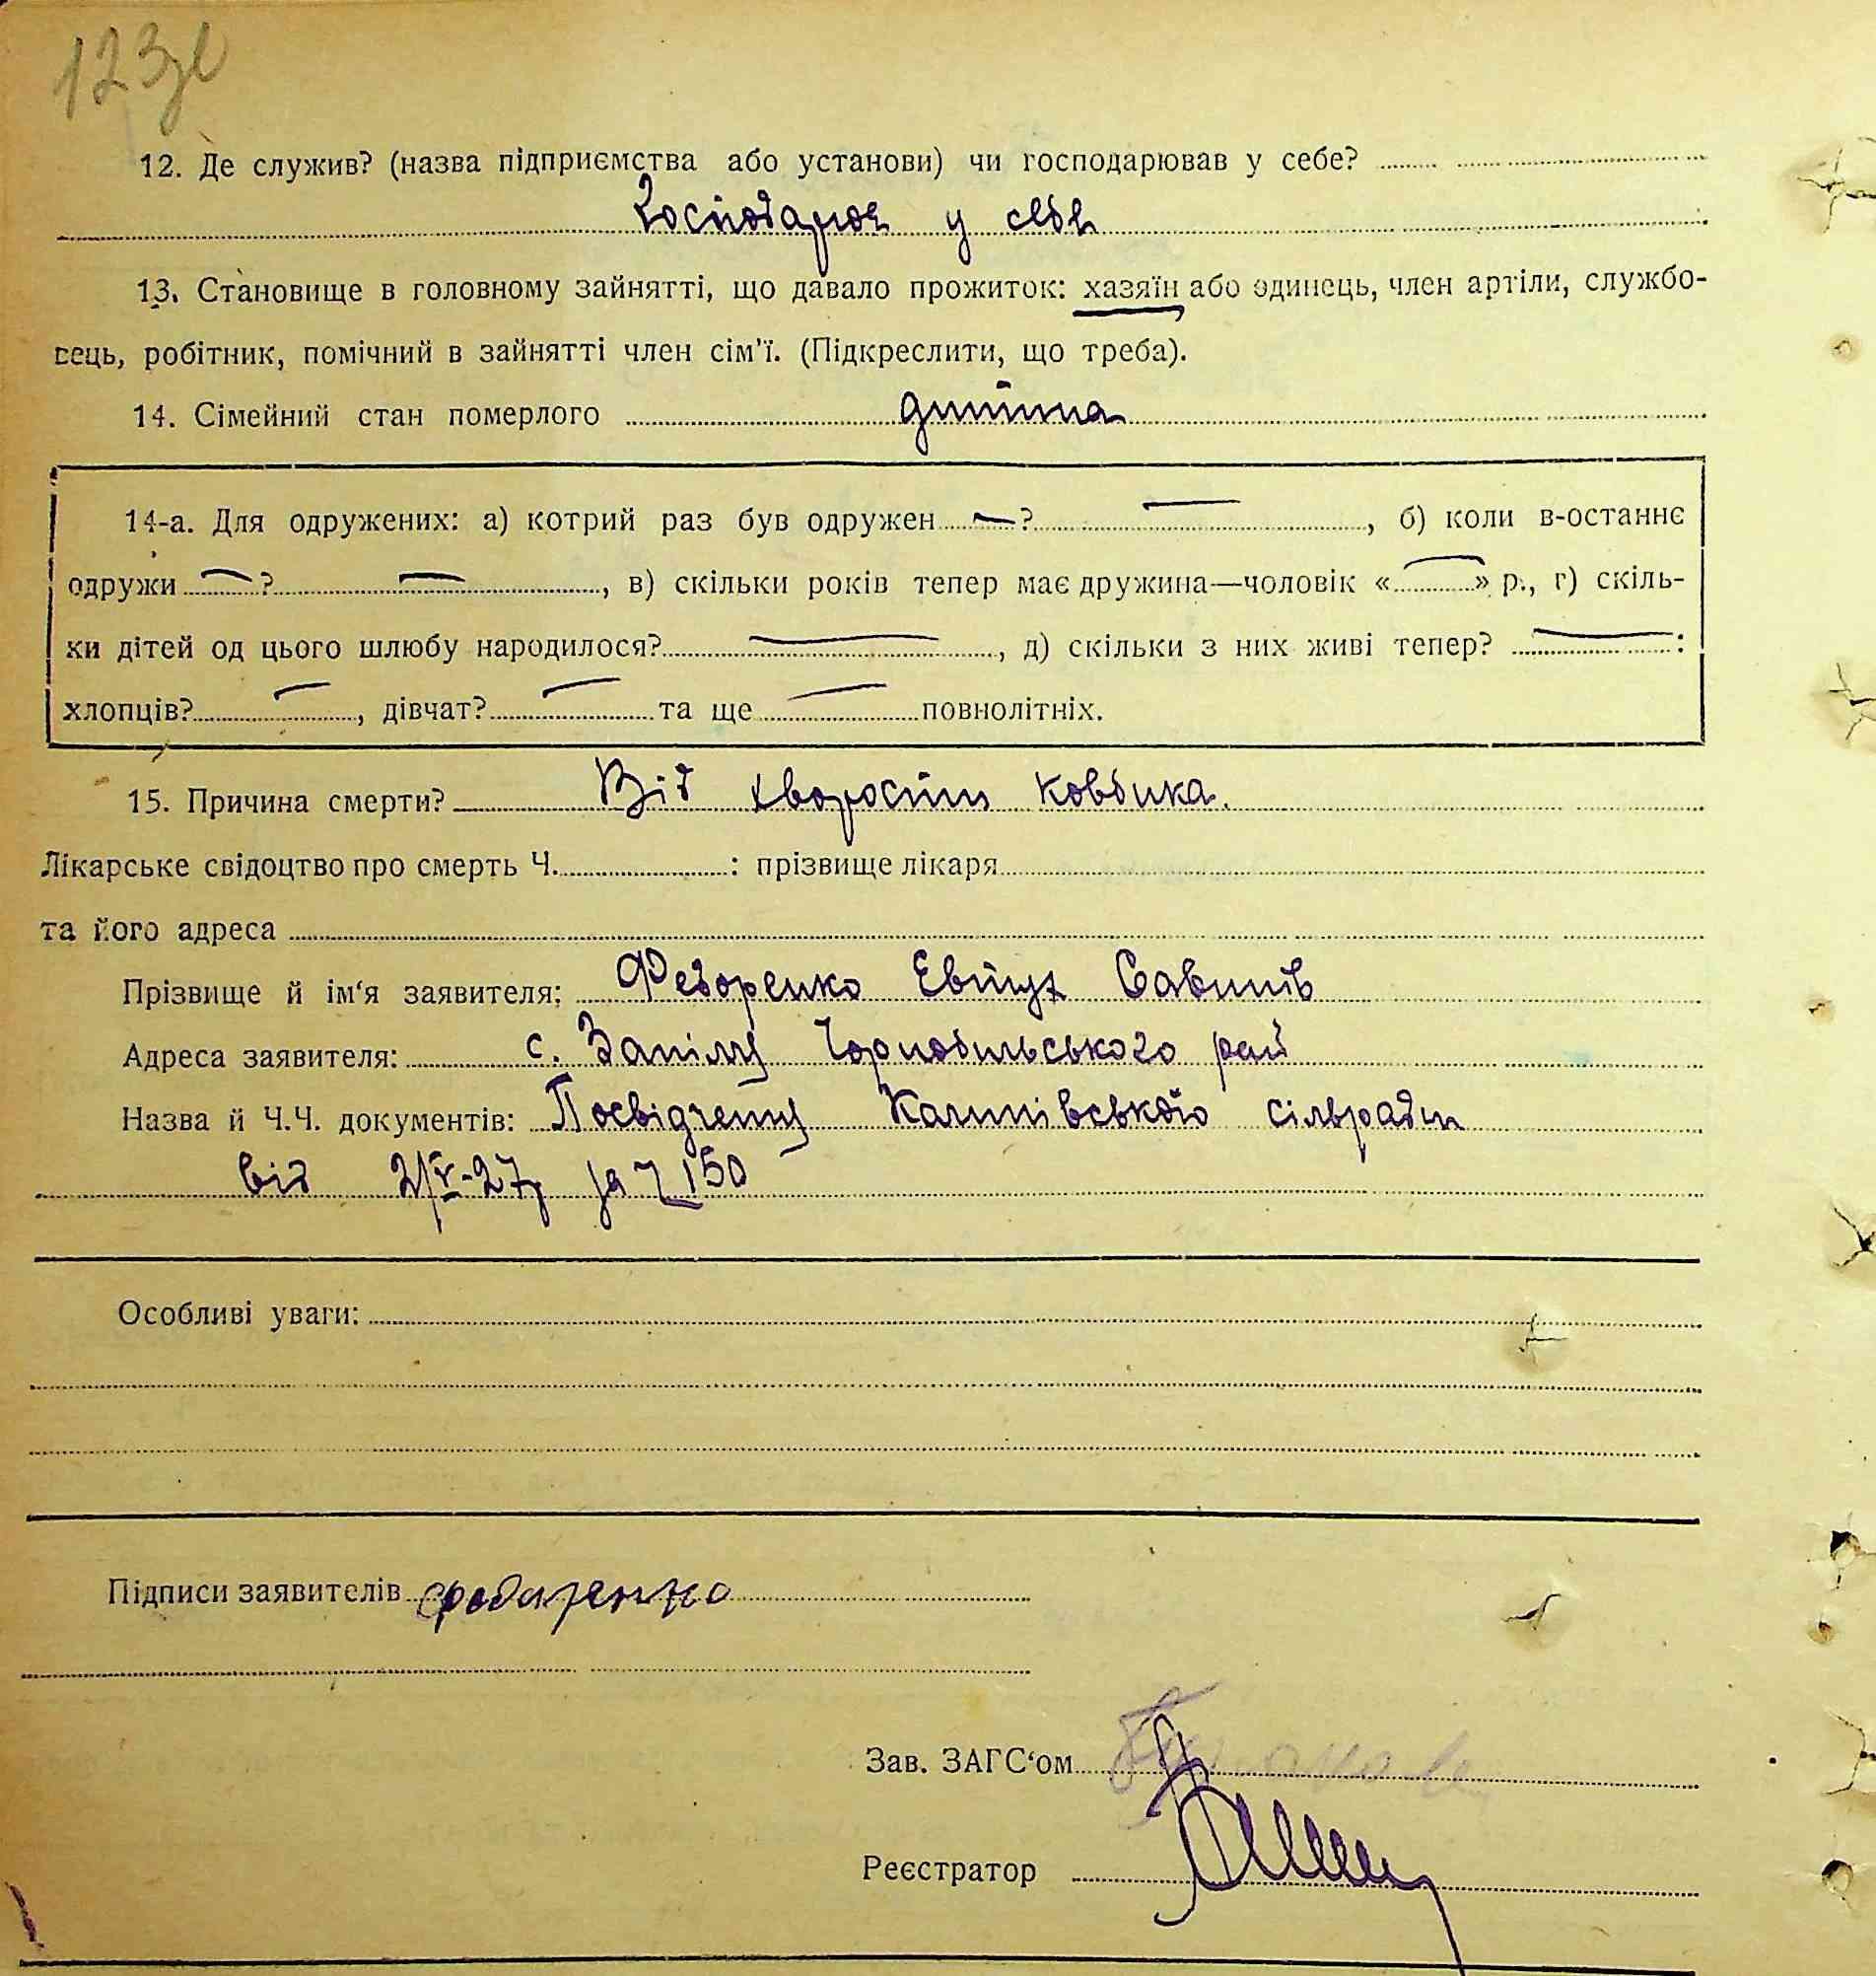 123зв
12. Де служив? (назва підприємства або установи) чи господарював у себе?
Господарюв у себе
13. Становище в головному зайнятті, що давало прожиток: хазяїн або одинець, член артіли, службо-
вець, робітник, помічний в зайнятті член сім'ї. (Підкреслити, що треба).
14. Сімейний стан померлого дитина
14-а. Для одружених: а) котрий раз був одружен — ? —, б) коли в-останнє
одружи — ? —, в) скільки років тепер має дружина—чоловік « — » р., г) скіль-
ки дітей од цього шлюбу народилося? —, д) скільки з них живі тепер? — :
хлопців? —, дівчат? — та ще — повнолітніх.
15. Причина смерти? Від хворости
Лікарське свідоцтво про смерть Ч. : прізвище лікаря
та його адреса
Прізвище й ім'я заявителя: Федоренко Евтух Савитів
Адреса заявителя: с. Запілля Чорнобильського рай
Назва й Ч.Ч. документів: Посвідчення сільради
від 2/V-27р за Ч 150
Особливі уваги:
Підписи заявителів Федоренко
Зав. ЗАГС'ом
Реєстратор